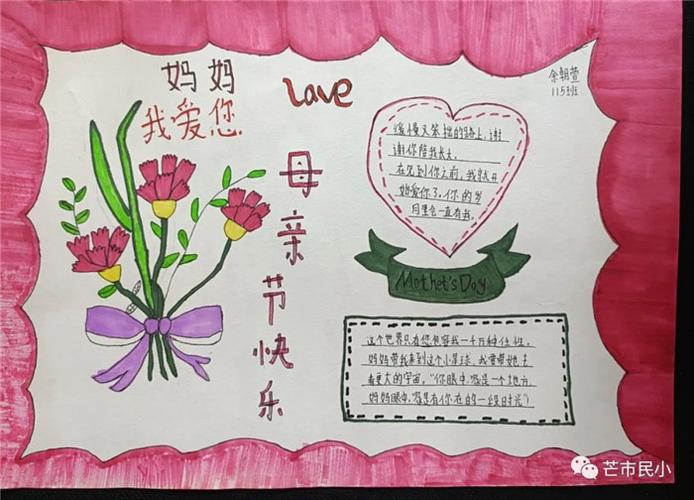 妈妈
我爱您
Love
余朝萱
115班
母亲节快乐
缓慢又笨拙的路上，谢
谢你陪我长大。
在见到你之前，我就开
始爱你了，你的岁
月里会一直有我。
Mothet's Day
这个世界只有您包容我一千万种任性，
妈妈带我来到这个小星球，我要带她去
看更大的宇宙，"你眼中，家是一个地方
妈妈眼中，家是有你在的一段时光"）
芒市民小